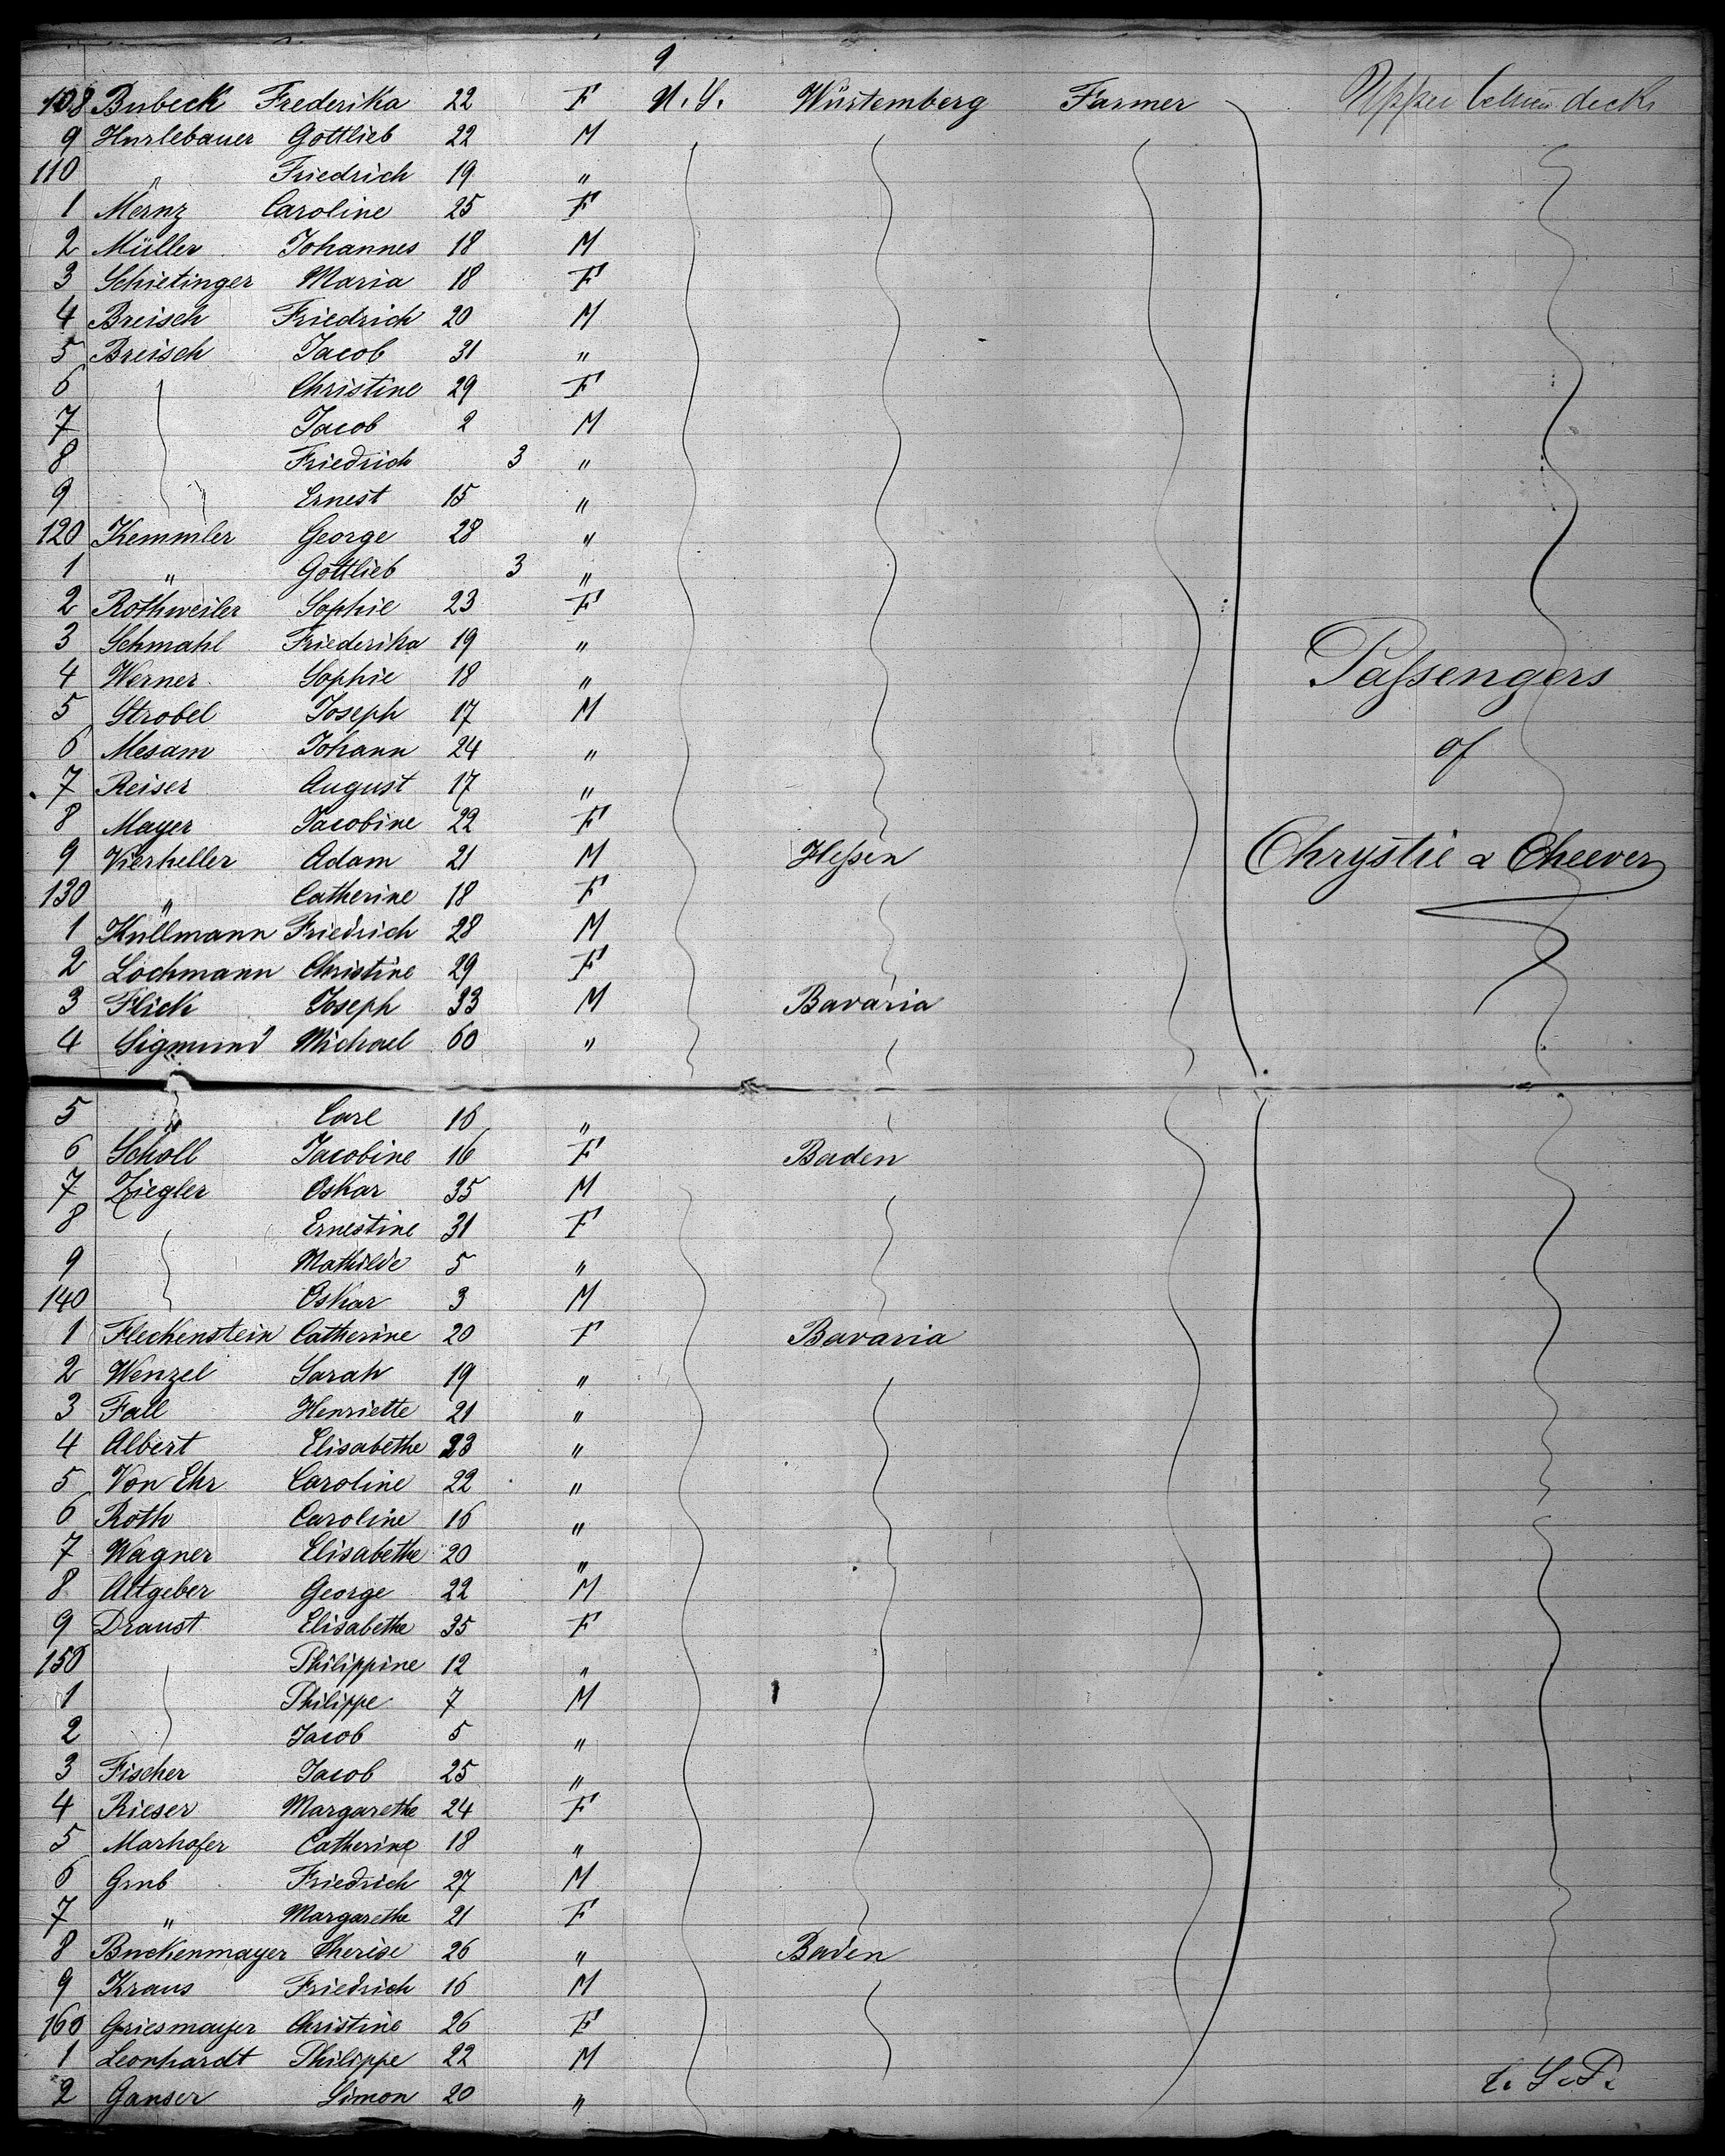 9
108 Bubeck Frederika 22 F N. Y. Würtemberg Farmer Upper between decks
9 Hurlebauer Gottlieb 22 M
110 " Friedrich 19 "
1 Mernz Caroline 25 F
2 Müller Johannes 18 M
3 Schietinger Maria 18 F
4 Breisch Friedrich 20 M
5 Breisch Jacob 31 "
6 Christine 29 F
7 Jacob 2 M
8 Friedrich 3 "
9 " Ernest 15 "
120 Kemmler George 28 "
1 " Gottlieb 3 "
2 Rothweiler Sophie 23 F
3 Schmahl Friederika 19 "
4 Werner Sophie 18 "
Passengers
5 Strobel Joseph 17 M
6 Mesam Johann 24 "
of
7 Reiser August 17 "
8 Mayer Jacobine 22 F
9 Vierheller Adam 21 M Hessen Chrystie & Cheever
130 " Catherine 18 F
1 Küllmann Friedrich 28 M
2 Lochmann Christine 29 F
3 Flick Joseph 33 M Bavaria
4 Sigmund Michael 60 "
5 Carl 16 "
6 Scholl Jacobine 16 F Baden
7 Ziegler Oskar 35 M
8 Ernestine 31 F
9 Mathilde 5 "
140 Oskar 3 M
1 Fleckenstein Catherine 20 F Bavaria
2 Wenzel Sarah 19 "
3 Fall Henriette 21 "
4 Albert Elisabethe 23 "
5 Von Ehr Caroline 22 "
6 Roth Caroline 16 "
7 Wagner Elisabethe 20 "
8 Altgeber George 22 M
9 Draust Elisabethe 35 F
150 Philippine 12 "
1 Philippe 7 M
2 Jacob 5 "
3 Fischer Jacob 25 "
4 Rieser Margarethe 24 F
5 Marhofer Catherine 18 "
6 Grub Friedrich 27 M
7 " Margarethe 21 F
8 Buckenmayer Therese 26 " Baden
9 Kraus Friedrich 16 M
160 Griesmayer Christine 26 F
1 Leonhardt Philippe 22 M
2 Ganser Simon 20 "